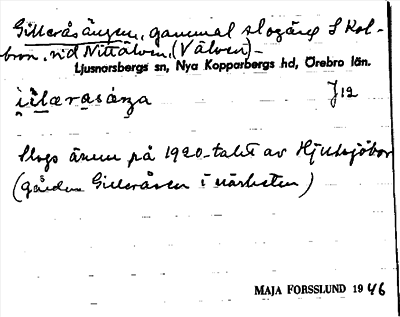 Gilleråsängen, gammal slogäng S Kol-
bron. vid Nittälven, (Välven) -
Ljusnarsbergs sn, Nya Kopparbergs hd, Örebro län.
J12
Slogs ännu på 1920-talet av Hjulsjöbor
(gården Gilleråsen i närheten)
MAJA FORSSLUND 1946